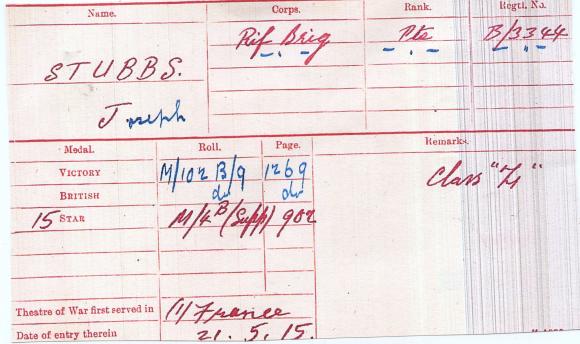 Name. Corps. Rank. Regtl. No.
Rif Brig Pte B/3344
" " "
STUBBS.
Joseph
Medal. Roll. Page. Remarks.
VICTORY M/102 B/9 1269 Class "Z"
BRITISH do do
15 STAR M/4 B (Supp) 902
Theatre of War first served in (1) France
Date of entry therein 21. 5. 15.